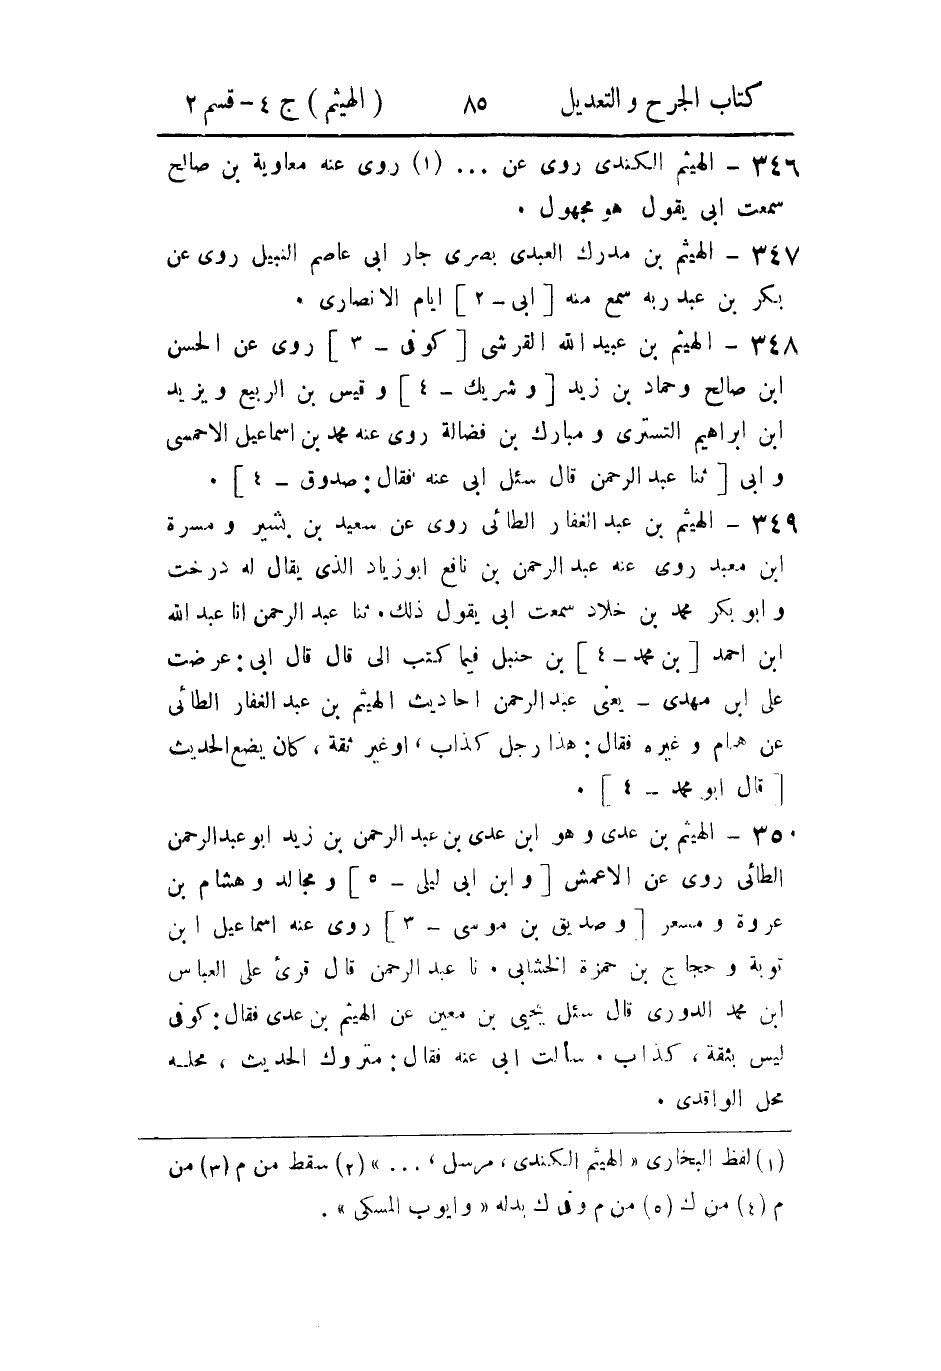 كتاب الجرح و التعديل ٨٥ ( الهيثم ) ج ٤ - قسم ٢
٣٤٦ - الهيثم الكندى روى عن ... (١) روى عنه معاوية بن صالح
سمعت ابى يقول هو مجهول .
٣٤٧ - الهيثم بن مدرك العبدى بصرى جار ابى عاصم النبيل روى عن
بكر بن عبد ربه سمع منه [ ابى - ٢ ] ايام الانصارى .
٣٤٨ - الهيثم بن عبيد الله القرشى [ كوفى - ٣ ] روى عن الحسن
ابن صالح وحماد بن زيد [ و شريك - ٤ ] و قيس بن الربيع و يزيد
ابن ابراهيم التسترى و مبارك بن فضالة روى عنه محمد بن اسماعيل الاحمسى
و ابى [ ثنا عبد الرحمن قال سئل ابى عنه فقال : صدوق - ٤ ] .
٣٤٩ - الهيثم بن عبد الغفار الطائى روى عن سعيد بن بشير و مسرة
ابن معبد روى عنه عبد الرحمن بن نافع ابوزياد الذى يقال له درخت
و ابو بكر محمد بن خلاد سمعت ابى يقول ذلك . ثنا عبد الرحمن انا عبد الله
ابن احمد [ بن محمد - ٤ ] بن حنبل فيما كتب الى قال قال ابى : عرضت
على ابن مهدى - يعنى عبد الرحمن احاديث الهيثم بن عبد الغفار الطائى
عن همام و غيره فقال : هذا رجل كذاب ، اوغير ثقة ، كان يضع الحديث
[ قال ابو محمد - ٤ ] .
٣٥٠ - الهيثم بن عدى و هو ابن عدى بن عبد الرحمن بن زيد ابو عبدالرحمن
الطائى روى عن الاعمش [ و ابن ابى ليلى - ٥ ] و مجالد و هشام بن
عروة و مسعر [ و صديق بن موسى - ٣ ] روى عنه اسماعيل ابن
توبة و حجاج بن حمزة الخشابى . نا عبد الرحمن قال قرئ على العباس
ابن محمد الدورى قال سئل يحيى بن معين عن الهيثم بن عدى فقال : كوفى
ليس بثقة ، كذاب . سألت ابى عنه فقال : متروك الحديث ، محله
محل الواقدى .
(١) لفظ البخارى « الهيثم الكندى ، مرسل ، ... » (٢) سقط من م (٣) من
م (٤) من ك (٥) من م وفى ك بدله « و ايوب المسكى » .